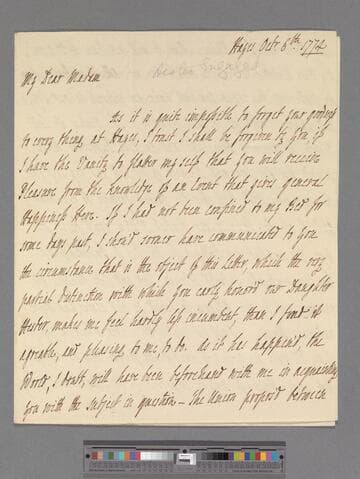 Hayes Octr. 6th. 1774
My Dear Madam
Hester engaged
As it is quite impossible to forget your goodness
to every thing at Hayes, I trust I shall be forgiven by you if
I have the Vanity to flatter myself that you will receive
Pleasure from the knowledge of an Event that gives general
Happiness Here. If I had not been confined to my Bed for
some days past, I shou'd sooner have communicated to you
the circumstance that is the object of this letter, which the very
partial Distinction with which you early honor'd our Daughter
Hester, makes me feel hardly less incumbent, than I find it
agreable, and pleasing to me to do. As it has happen'd, the
World, I doubt, will have been beforehand with me in acquainting
you with the subject in question_ The Union propos'd between